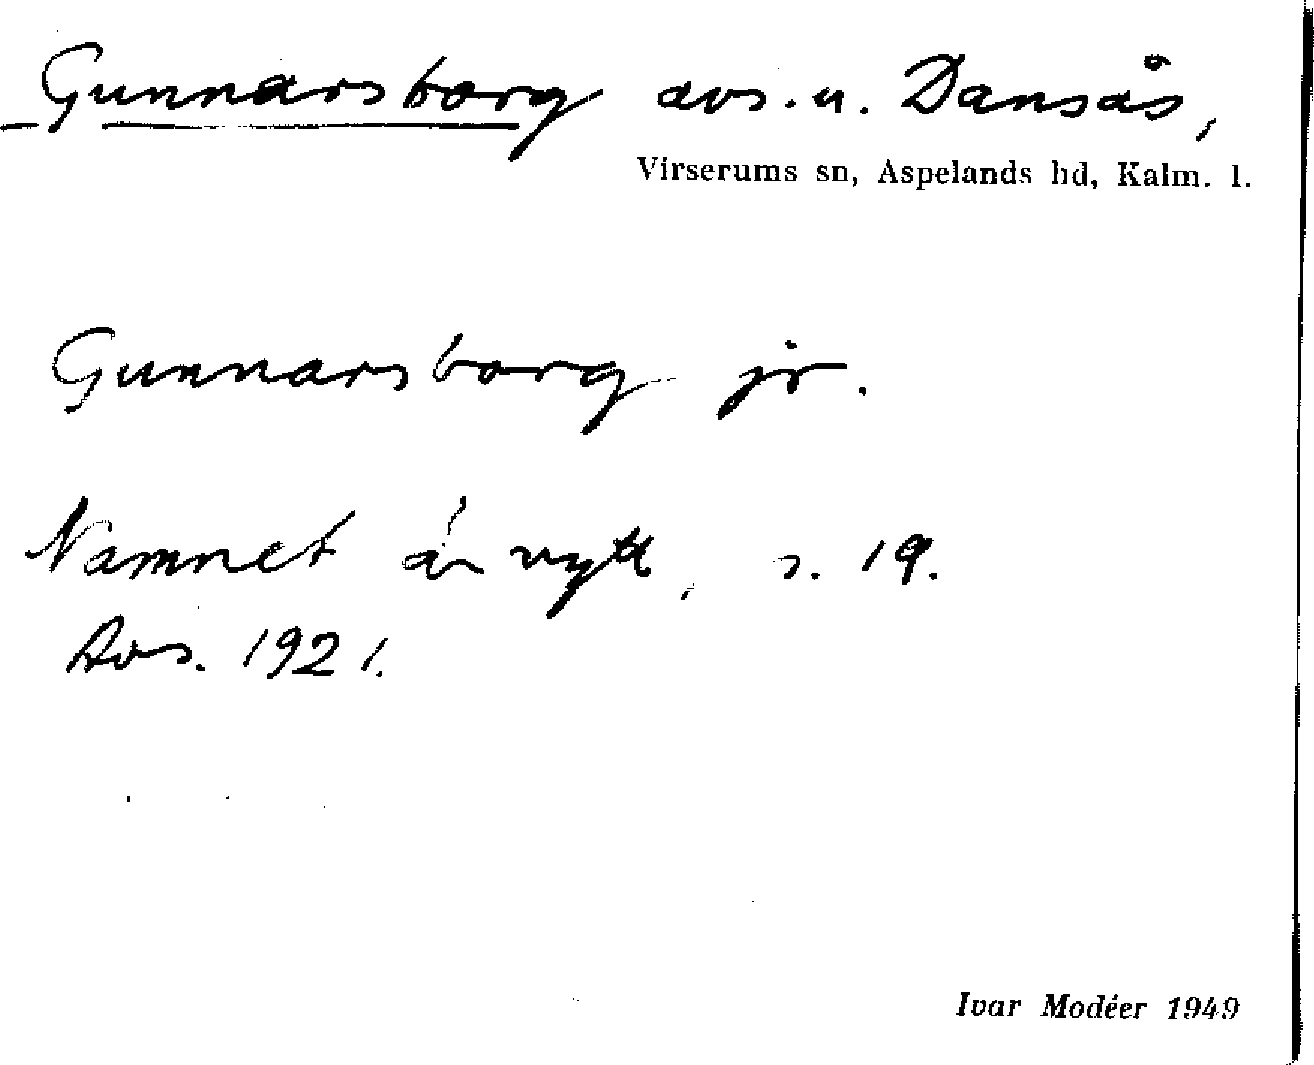 Gunnarsborg avs. u. Dansås,
Virserums sn, Aspelands hd, Kalm. l.
Gunnarsborg jr.
Namnet är nytt, s. 19.
Avs. 1921.
Ivar Modéer 1949